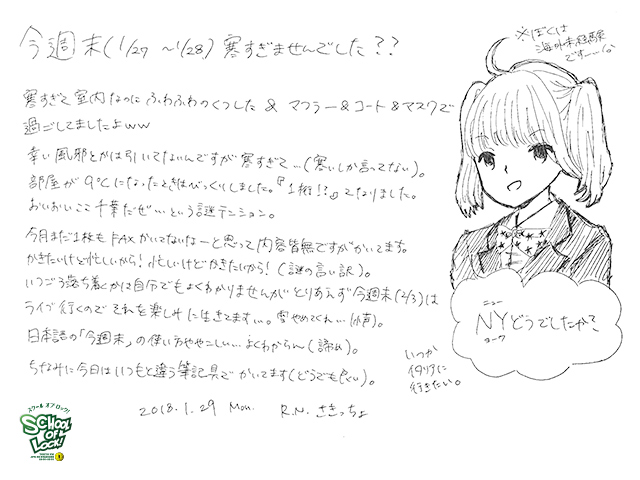 今週末(1/27 ~1/28)寒すぎませんでした??
※ぼくは
海外未経験
です……な
寒すぎて室内なのに ふわふわのくつした & マフラー&コート&マスクで
過ごしてましたよww
幸い風邪とかは引いてないんですが寒すぎて…(寒いしか言ってない)。
部屋が9℃になったときはびっくりしました。『1桁!?』てなりました。
おいおいここ千葉だぜ…という謎テンション。
今月まだ1枚もFAXかいてないなーと思って内容皆無ですがかいてます。
かきたいけど忙しいから!忙しいけどかきたいから!(謎の言い訳)。
いつごろ落ち着くかは自分でもよくわかりませんが とりあえず今週末(2/3)は
ライブ行くので それを楽しみに生きてます…。雪やめてくれ…(小声)。
日本語の「今週末」の使い方ややこしい…よくわからん(諦め)。
ちなみに今日はいつもと違う筆記具でかいてます(どうでも良い)。
ニュー
NYどうでしたか?
ヨーク
いつか
イタリアに
行きたい。
2018.1.29 Mon. R.N. さきっちょ
スクール オブ ロック!
SCHOOL
OF
LOCK!